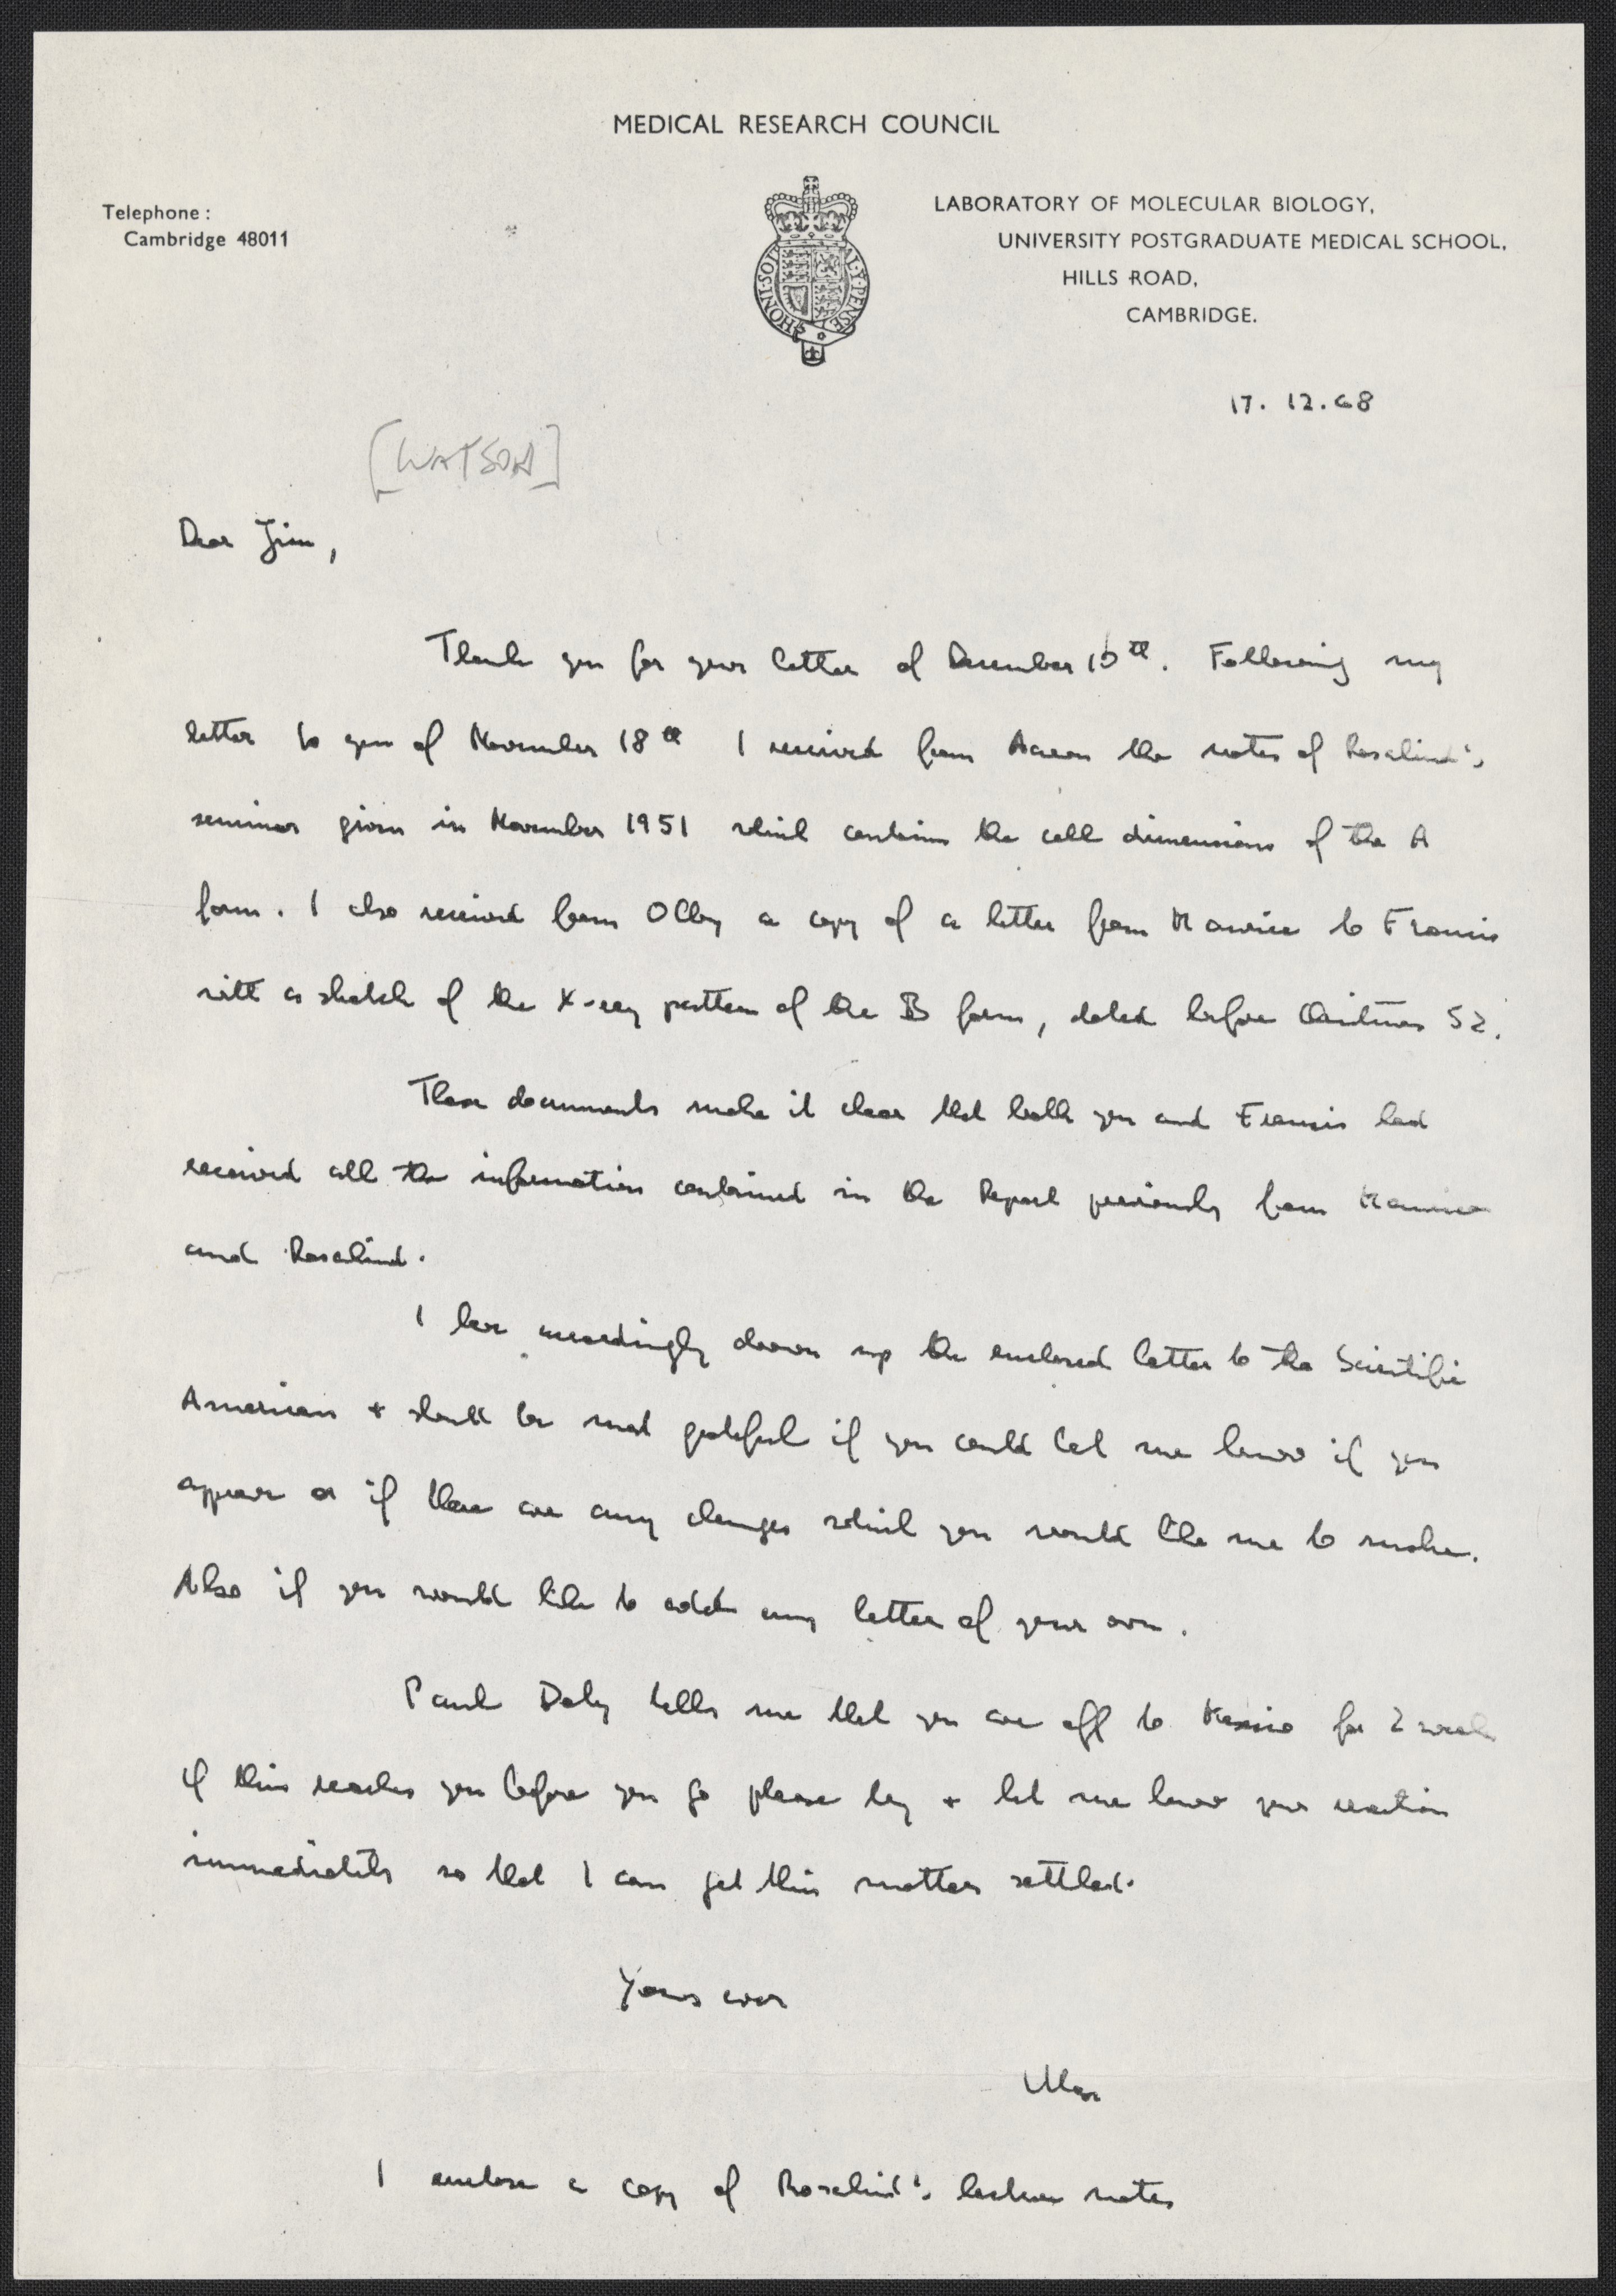 MEDICAL RESEARCH COUNCIL
Telephone :
Cambridge 48011
HONI·SOIT AL·Y·PENSE
LABORATORY OF MOLECULAR BIOLOGY,
UNIVERSITY POSTGRADUATE MEDICAL SCHOOL,
HILLS ROAD,
CAMBRIDGE.
17. 12. 68
[WATSON]
Dear Jim,
Thank you for your letter of December 10th. Following my
letter to you of November 18th I received from Aaron the notes of Rosalind's
seminar given in November 1951 which contains the cell dimensions of the A
form. I also received from Olby a copy of a letter from Maurice to Francis
with a sketch of the X-ray pattern of the B form, dated before Christmas 52.
These documents make it clear that both you and Francis had
received all the information contained in the Report previously from Maurice
and Rosalind.
I have accordingly drawn up the enclosed letter to the Scientific
American + should be most grateful if you could let me know if you
approve or if there are any changes which you would like me to make.
Also if you would like to add any letter of your own.
Paul Doty tells me that you are off to Mexico for 2 weeks
if this reaches you before you go please try + let me know your reaction
immediately so that I can get this matter settled.
Yours ever
Max
I enclose a copy of Rosalind's lecture notes